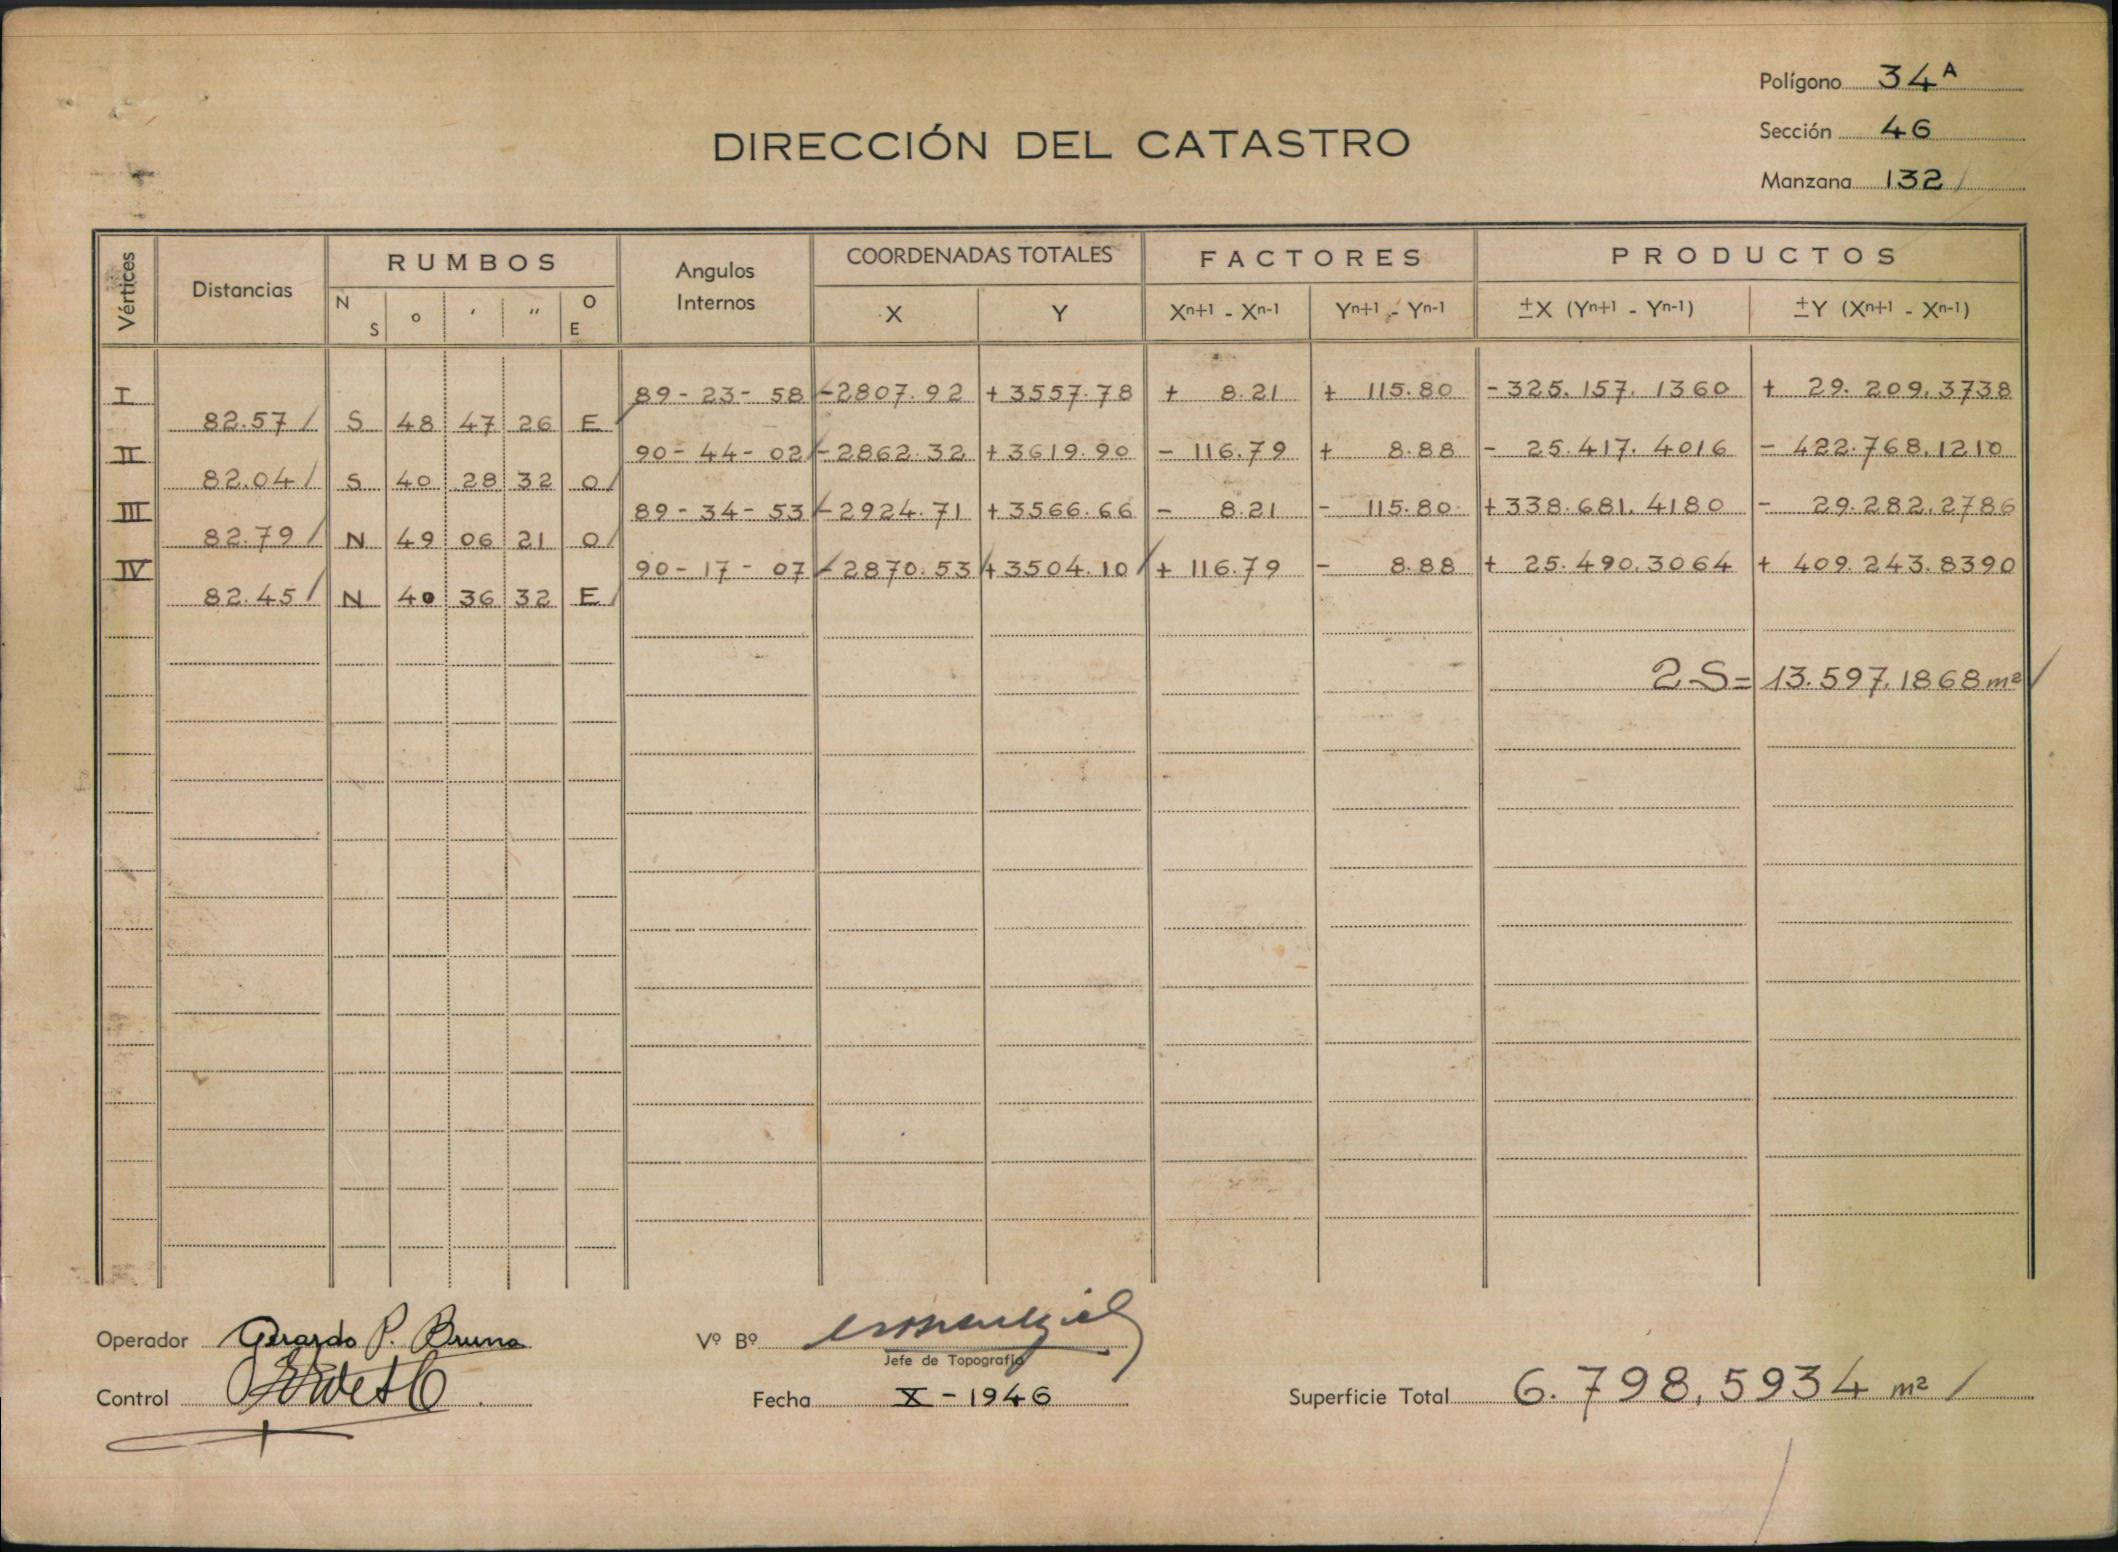 Polígono 34 A
Sección 46
Manzana 132 /
DIRECCIÓN DEL CATASTRO
Vértices Distancias RUMBOS Angulos Internos COORDENADAS TOTALES FACTORES PRODUCTOS
N S o ' " O E X Y Xn+1 - Xn-1 Yn+1 - Yn-1 ±X (Yn+1 - Yn-1) ±Y (Xn+1 - Xn-1)
I 89 - 23 - 58 -2807.92 +3557.78 + 8.21 + 115.80 -325.157.1360 + 29.209.3738
82.57 / S 48 47 26 E /
II 90 - 44 - 02 / -2862.32 +3619.90 - 116.79 + 8.88 - 25.417.4016 - 422.768.1210
82.04 / S 40 28 32 O /
III 89 - 34 - 53 / -2924.71 +3566.66 - 8.21 - 115.80 +338.681.4180 - 29.282.2786
82.79 / N 49 06 21 O /
IV 90 - 17 - 07 / -2870.53 +3504.10 / + 116.79 - 8.88 + 25.490.3064 + 409.243.8390
82.45 / N 40 36 32 E /
2S= 13.597.1868 m² /
Operador Gerardo P. Bruno
Vº Bº
Jefe de Topografía
Control
Fecha X - 1946
Superficie Total 6.798,5934 m² /